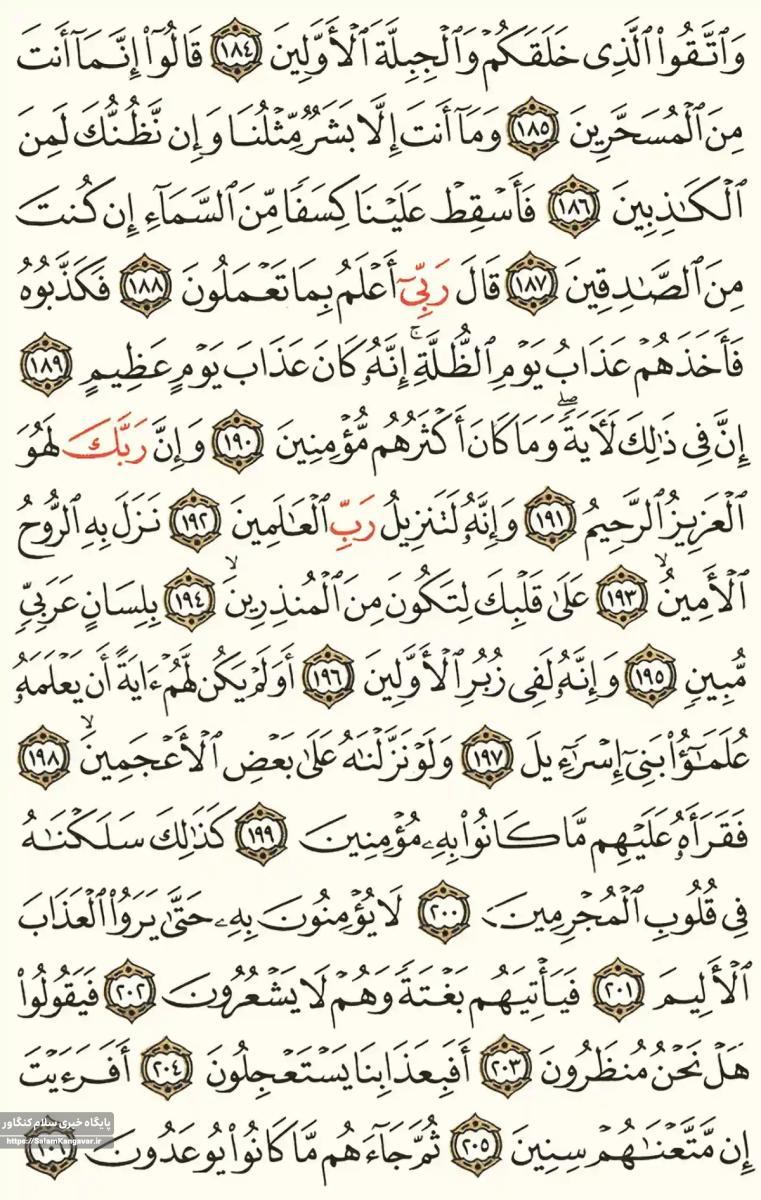 وَٱتَّقُوا۟ ٱلَّذِى خَلَقَكُمْ وَٱلْجِبِلَّةَ ٱلْأَوَّلِينَ ١٨٤ قَالُوٓا۟ إِنَّمَآ أَنتَ
مِنَ ٱلْمُسَحَّرِينَ ١٨٥ وَمَآ أَنتَ إِلَّا بَشَرٌ مِّثْلُنَا وَإِن نَّظُنُّكَ لَمِنَ
ٱلْكَـٰذِبِينَ ١٨٦ فَأَسْقِطْ عَلَيْنَا كِسَفًا مِّنَ ٱلسَّمَآءِ إِن كُنتَ
مِنَ ٱلصَّـٰدِقِينَ ١٨٧ قَالَ رَبِّىٓ أَعْلَمُ بِمَا تَعْمَلُونَ ١٨٨ فَكَذَّبُوهُ
فَأَخَذَهُمْ عَذَابُ يَوْمِ ٱلظُّلَّةِ ۚ إِنَّهُۥ كَانَ عَذَابَ يَوْمٍ عَظِيمٍ ١٨٩
إِنَّ فِى ذَٰلِكَ لَـَٔايَةً ۖ وَمَا كَانَ أَكْثَرُهُم مُّؤْمِنِينَ ١٩٠ وَإِنَّ رَبَّكَ لَهُوَ
ٱلْعَزِيزُ ٱلرَّحِيمُ ١٩١ وَإِنَّهُۥ لَتَنزِيلُ رَبِّ ٱلْعَـٰلَمِينَ ١٩٢ نَزَلَ بِهِ ٱلرُّوحُ
ٱلْأَمِينُ ۙ ١٩٣ عَلَىٰ قَلْبِكَ لِتَكُونَ مِنَ ٱلْمُنذِرِينَ ۙ ١٩٤ بِلِسَانٍ عَرَبِىٍّ
مُّبِينٍ ١٩٥ وَإِنَّهُۥ لَفِى زُبُرِ ٱلْأَوَّلِينَ ١٩٦ أَوَلَمْ يَكُن لَّهُمْ ءَايَةً أَن يَعْلَمَهُۥ
عُلَمَـٰٓؤُا۟ بَنِىٓ إِسْرَٰٓءِيلَ ١٩٧ وَلَوْ نَزَّلْنَـٰهُ عَلَىٰ بَعْضِ ٱلْأَعْجَمِينَ ۙ ١٩٨
فَقَرَأَهُۥ عَلَيْهِم مَّا كَانُوا۟ بِهِۦ مُؤْمِنِينَ ١٩٩ كَذَٰلِكَ سَلَكْنَـٰهُ
فِى قُلُوبِ ٱلْمُجْرِمِينَ ٢٠٠ لَا يُؤْمِنُونَ بِهِۦ حَتَّىٰ يَرَوُا۟ ٱلْعَذَابَ
ٱلْأَلِيمَ ٢٠١ فَيَأْتِيَهُم بَغْتَةً وَهُمْ لَا يَشْعُرُونَ ٢٠٢ فَيَقُولُوا۟
هَلْ نَحْنُ مُنظَرُونَ ٢٠٣ أَفَبِعَذَابِنَا يَسْتَعْجِلُونَ ٢٠٤ أَفَرَءَيْتَ
إِن مَّتَّعْنَـٰهُمْ سِنِينَ ٢٠٥ ثُمَّ جَآءَهُم مَّا كَانُوا۟ يُوعَدُونَ ٢٠٦
پایگاه خبری سلام کنگاور
https://SalamKangavar.ir